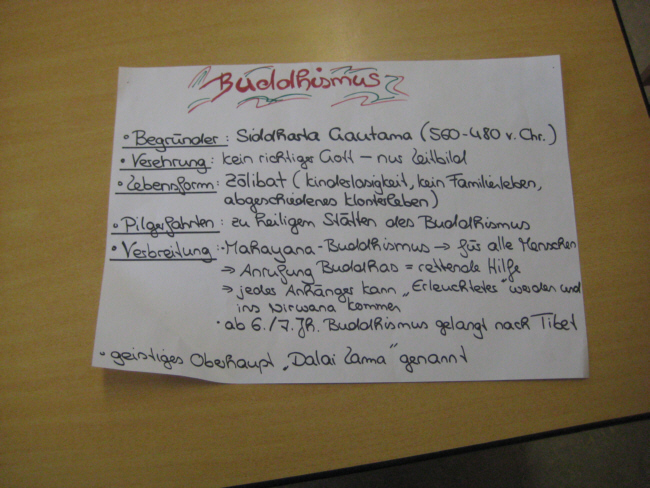 Buddhismus
• Begründer: Siddharta Gautama (560-480 v. Chr.)
• Verehrung: kein richtiger Gott – nur Leitbild
• Lebensform: Zölibat (kinderlosigkeit, kein Familienleben,
abgeschiedenes Klosterleben)
• Pilgerfahrten: zu heiligem Stätten des Buddhismus
• Verbreitung: • Mahayana-Buddhismus → für alle Menschen
⇒ Anrufung Buddhas = rettende Hilfe
⇒ jeder Anhänger kann „Erleuchteter" werden und
ins Nirwana kommen
• ab 6./7. Jh. Buddhismus gelangt nach Tibet
• geistiges Oberhaupt „Dalai Lama" genannt